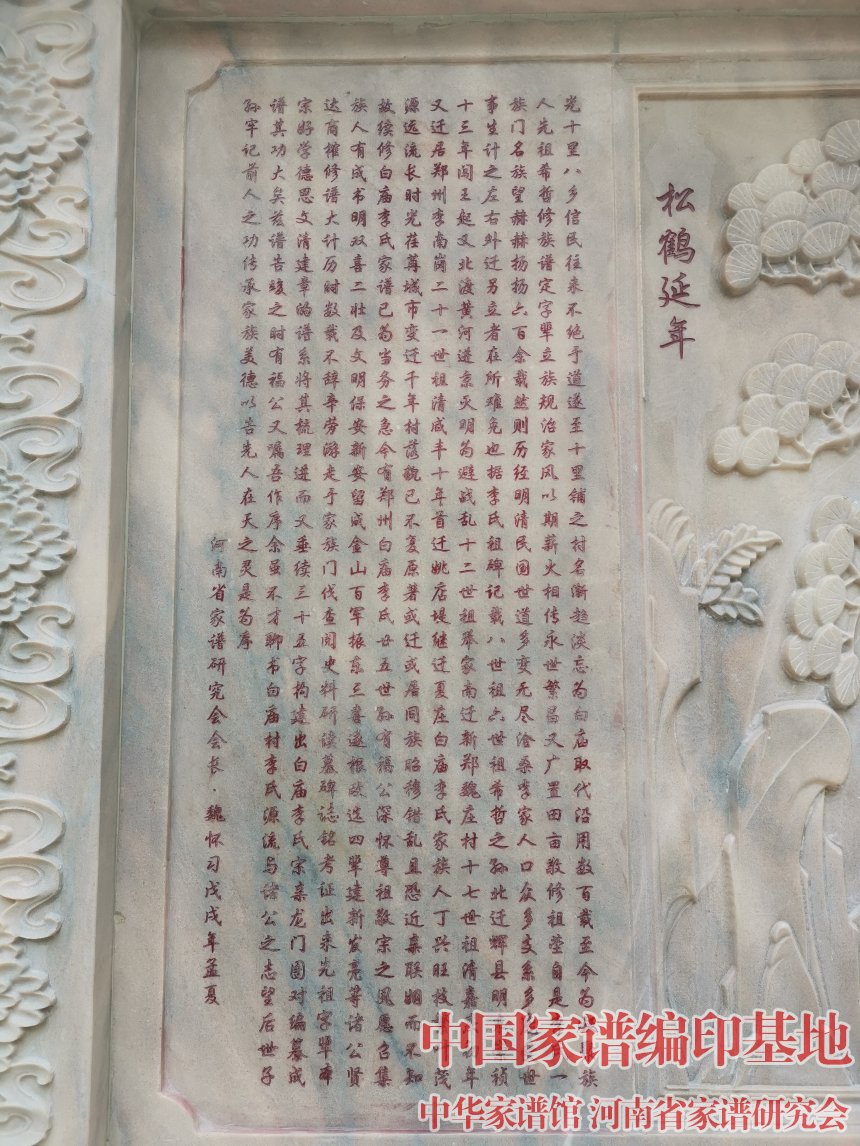 松鹤延年
光十里八乡信民往来不绝于道遂至十里铺之村名渐趋淡忘为白庙取代沿用数百载至今为李氏族
人先祖希哲修族谱定字辈立族规治家风以期薪火相传永世繁昌又广置田亩敬修祖茔自是一
族门名族望赫赫扬扬六百余载然则历经明清民国世道多变无尽沧桑李家人口众多支系多世
事生计之左右外迁另立者在所难免也据李氏祖碑记载八世祖六世祖希哲之孙北迁辉县明祯
十三年闯王起义北渡黄河进京灭明为避战乱十二世祖举家南迁新郑魏庄村十七世祖清嘉年
又迁居郑州李南岗二十一世祖清咸丰十年首迁姚店堤继迁夏庄白庙李氏家族人丁兴旺枝茂
源远流长时光荏苒城市变迁千年村落貌已不复原著或迁或居同族昭穆错乱且恐近亲联姻而不知
故续修白庙李氏家谱已为当务之急今有郑州白庙李氏廿五世孙有福公深怀尊祖敬宗之夙愿召集
族人有成书明双喜二壮及文明保安新安留成金山百军振东三喜遂根政选四辈建新发亮等诸公贤
达商榷修谱大计历时数载不辞辛劳游走于家族门伐查阅史料研读墓碑志铭考证出来先祖字辈本
宗好学德思文清建章的谱系将其梳理进而又垂续三十五字构建出白庙李氏宗亲龙门图对编纂成
谱其功大矣兹谱告竣之时有福公又嘱吾作序余虽不才聊书白庙村李氏源流与诸公之志望后世子
孙牢记前人之功传承家族美德以告先人在天之灵是为序
河南省家谱研究会会长·魏怀习戊戌年孟夏
中国家谱编印基地
中华家谱馆 河南省家谱研究会